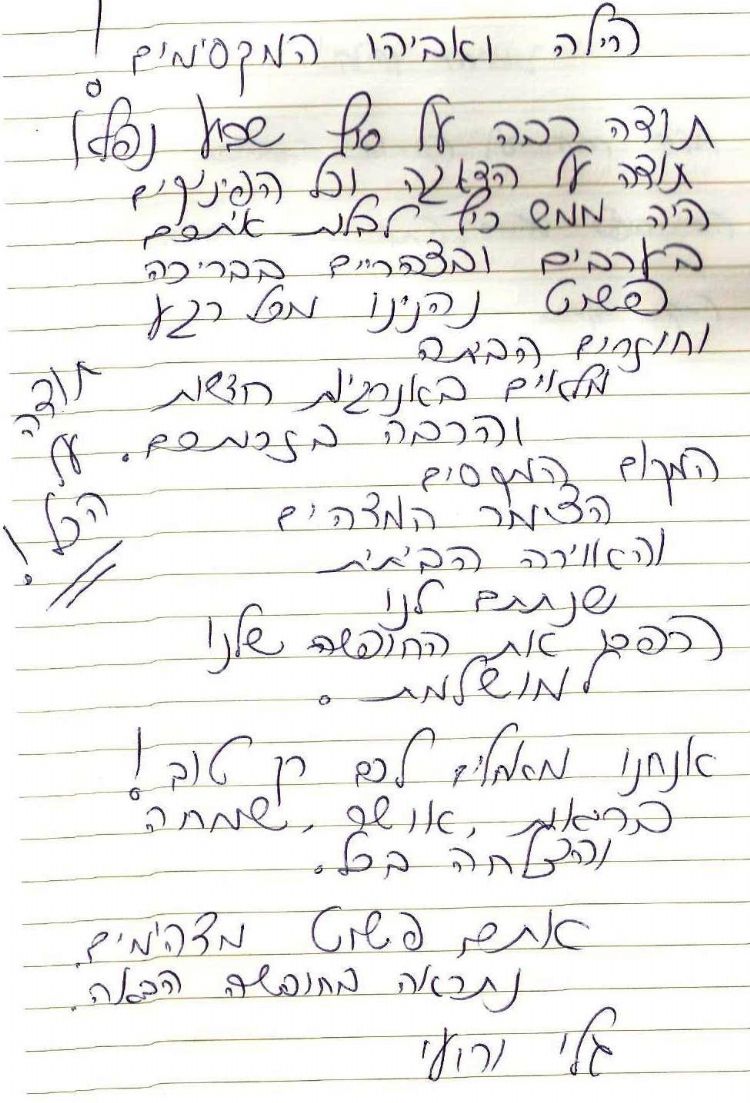 הילה ואביהו המקסימים!
תודה רבה על סוף שבוע נפלא!
תודה על הדאגה וכל הפינוקים
היה ממש כיף לבלות איתכם
בערבים ובצהריים בבריכה
פשוט נהנינו מכל רגע
וחוזרים הביתה
מלאים באנרגיות חדשות
והרבה בזכותכם.
המקום המקסים
הצימר המדהים
והאווירה הביתית
שנתתם לנו
הפכו את החופשה שלנו
למושלמת.
אנחנו מאחלים לכם רק טוב!
בריאות, אושר, שמחה
והצלחה בכל.
אתם פשוט מדהימים.
נתראה בחופשה הבאה.
גלי ורועי
תודה
על
הכל!